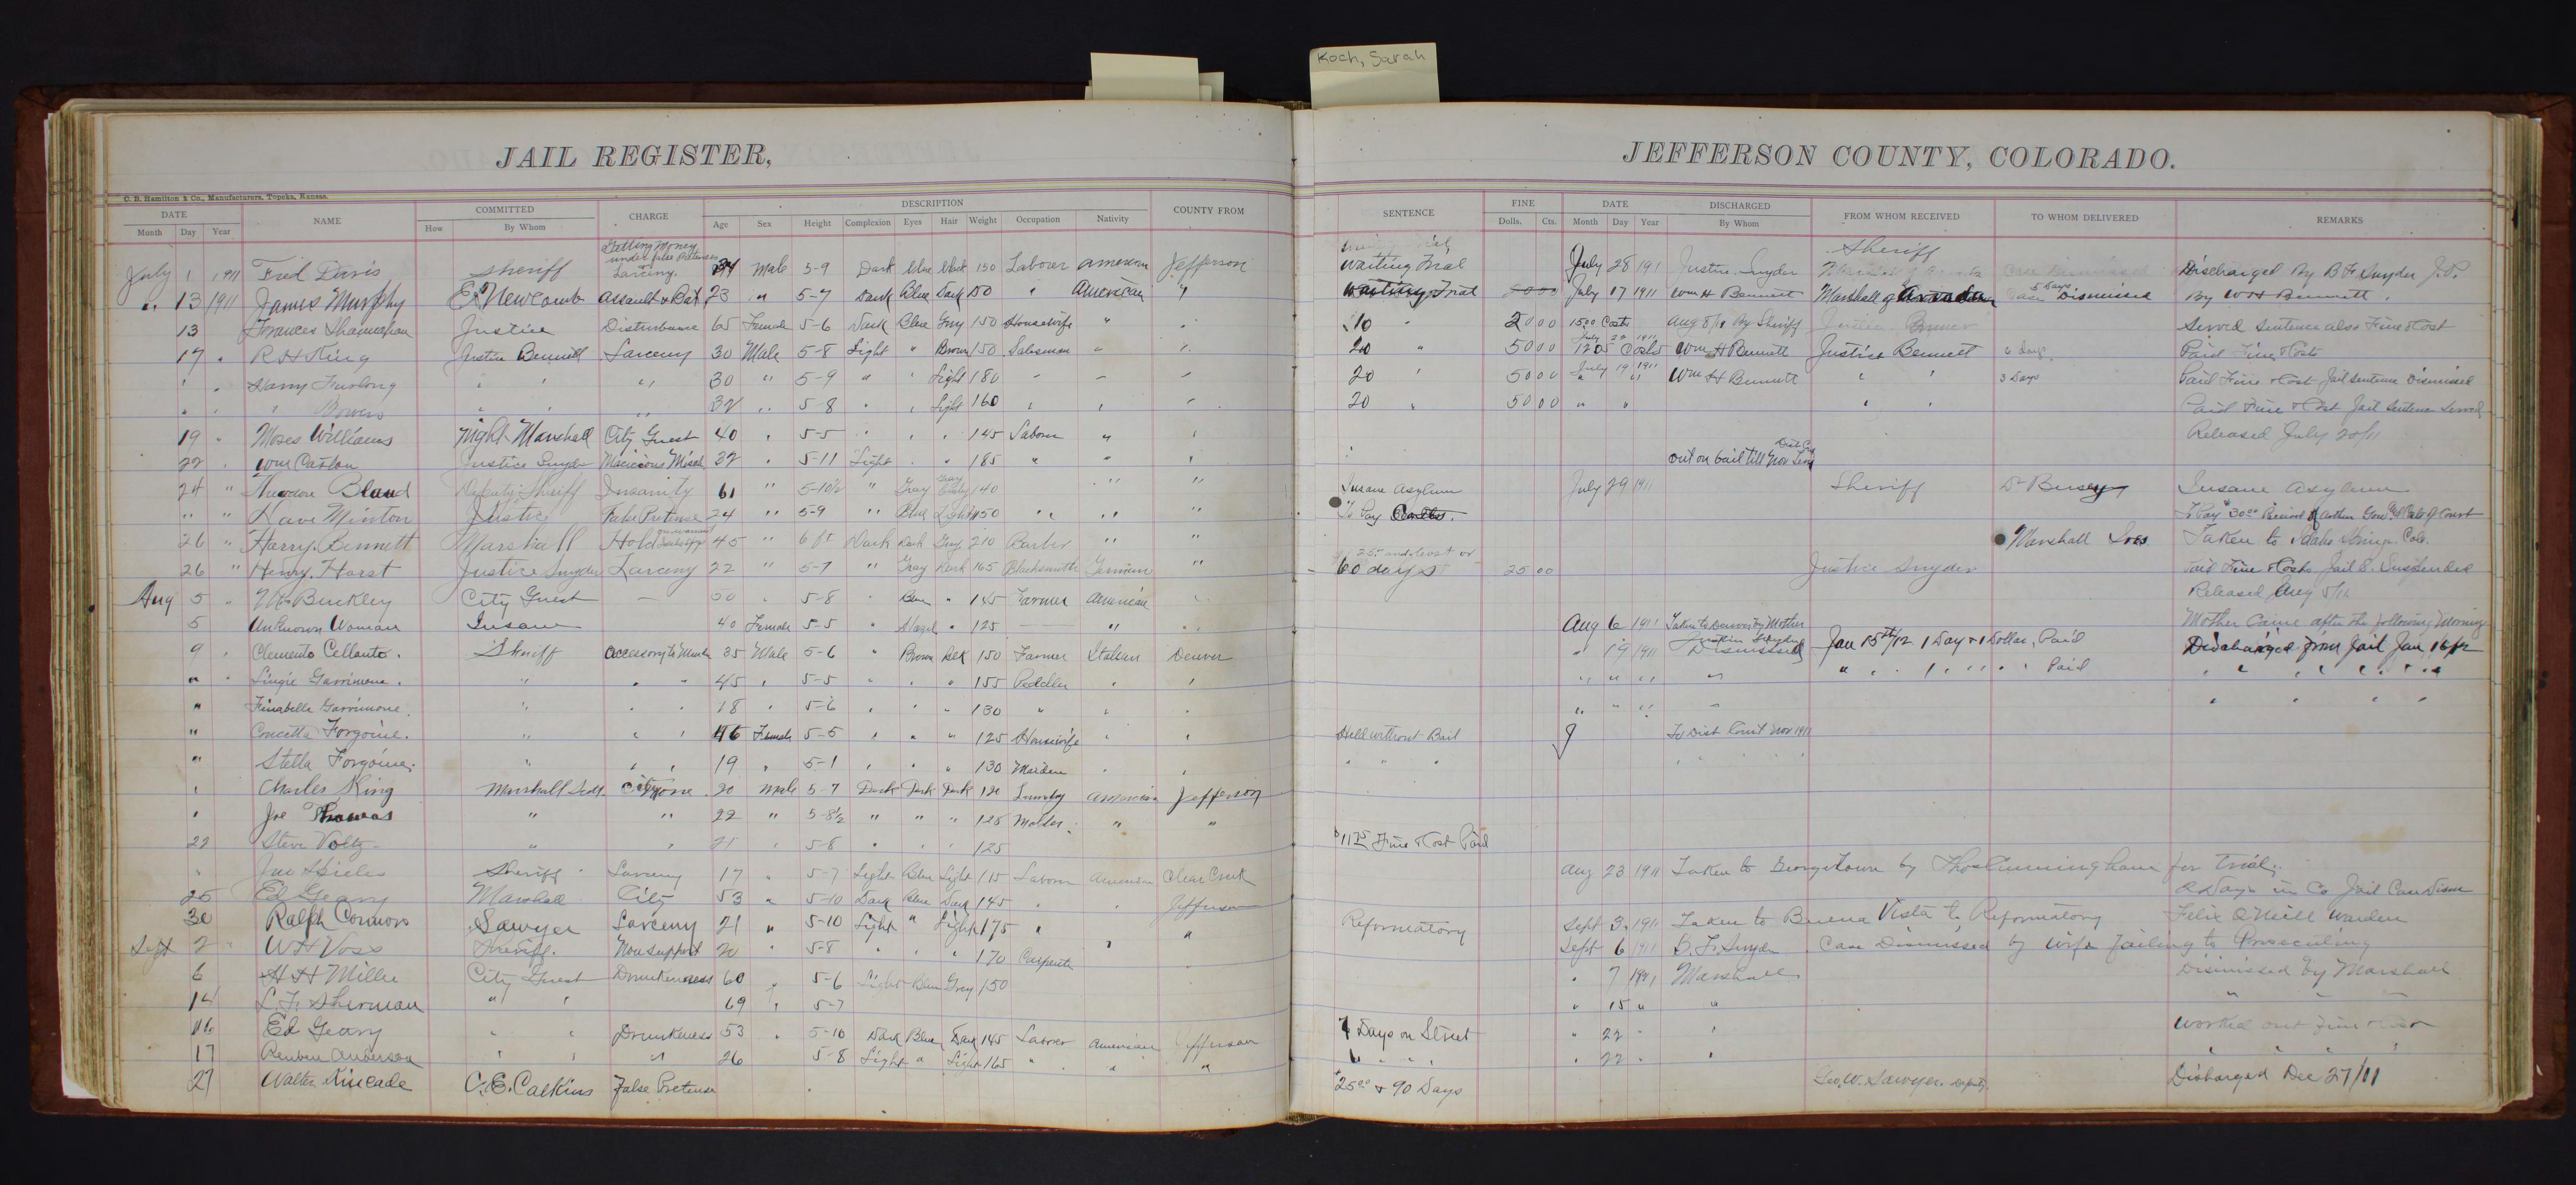 Koch, Sarah
JAIL REGISTER,
C. B. Hamilton & Co., Manufacturers, Topeka, Kansas.
DATE NAME COMMITTED CHARGE DESCRIPTION COUNTY FROM
Month Day Year How By Whom Age Sex Height Complexion Eyes Hair Weight Occupation Nativity
Getting Money
under false Pretenses
July 1 1911 Fred Davis Sheriff Larceny. Male 5-9 Dark Blue Black 150 Laborer American Jefferson
" 13 1911 James Murphy Newcomb Assault & Bat 23 " 5-7 Dark Blue Dark 150 " American "
13 Frances Justice Disturbance 65 Female 5-6 Dark Blue Grey 150 Housewife " "
17 " R H King Justice Bennett Larceny 30 Male 5-8 Light " Brown 150 Salesman " "
" " Harry Furlong " " " 30 " 5-9 " " Light 180 " " "
" " " Bowers " " " 32 " 5-8 " " Light 160 " " "
19 " Moses Williams Night Marshall City Guest 40 " 5-5 " " " 145 Labor " "
22 " Wm Justice Snyder Misch 32 " 5-11 Light " " 185 " " "
24 " Theodore Bland Deputy Sheriff Insanity 61 " 5-10½ " Gray Gray 140 " "
" " Minton Justice False Pretense 24 " 5-9 " Blue Light 150 " " "
26 " Harry Bennett Marshall Hold 45 " 6 ft Dark Dark Grey 210 Barber " "
26 " Henry Horst Justice Snyder Larceny 22 " 5-7 " Gray Dark 165 Blacksmith German "
Aug 5 " Buckley City Guest — 50 " 5-8 " Blue " 145 Farmer American "
5 Unknown Woman Insane 40 Female 5-5 " Hazel " 125 — " "
9 " Clemento Cellanto. Sheriff Accessory to Murder 35 Male 5-6 " Brown Blk 150 Farmer Italian Denver
" " Garrimone. " " " 45 " 5-5 " " " 155 Peddler " "
" Garrimone. " " " 18 " 5-6 " " " 130 " " "
" Concetta Forgoine. " " " 46 Female 5-5 " " " 125 Housewife " "
" Stella Forgoine. " " " 19 " 5-1 " " " 130 Maiden " "
" Charles King Marshall 20 Male 5-7 Dark Dark Dark 120 Laundry American Jefferson
" Joe Thomas " " 22 " 5-8½ " " " 125 Molder " "
22 Steve Voltz " " 21 " 5-8 " " " 125
" Joe Sheriff Larceny 17 " 5-7 Light Blue Light 115 Laborer American Clear Creek
25 Ed Geary Marshall City 53 " 5-10 Dark Blue Dark 145 " " Jefferson
30 Ralph Connors Sawyer Larceny 21 " 5-10 Light " Light 175 " "
Sept 2 " W H Voss Sheriff. Non support 20 " 5-8 " " " 170 Carpenter "
6 H H Miller City Guest Drunkenness 60 " 5-6 Light Blue Grey 150
14 L. F. Sherman " " 69 " 5-7
16 Ed Geary " " Drunkeness 53 " 5-10 Dark Blue Dark 145 Laborer American Jefferson
17 Reuben Anderson " " " 26 5-8 Light " Light 165 " " "
21 Walter Kincade C. E. Calkins False Pretense
JEFFERSON COUNTY, COLORADO.
SENTENCE FINE DATE DISCHARGED FROM WHOM RECEIVED TO WHOM DELIVERED REMARKS
Dolls. Cts. Month Day Year By Whom
Sheriff
Waiting Trial July 28 191 Justice Snyder Case Dismissed Discharged By B F Snyder J.P.
Waiting Trial July 17 1911 Wm H Bennett Marshall of Arvada 5 Days Dismissed By W H Bennett.
10 " 20 00 15.00 Costs Aug 8/11 By Sheriff Served Sentence also Fine & Cost
July 22 1911
20 " 50 00 Costs Wm H Bennett Justice Bennett 6 Days Paid Fine & Costs
20 " 50 00 July 19 1911 Wm H Bennett " " 3 Days Paid Fine & Cost Jail Sentence Dismissed
20 " 50 00 " " " " Paid Fine & Cost Jail Sentence Served
Released July 20/11
" out on bail till Nov Term Dist Crt
Insane Asylum July 29 1911 Sheriff Dr Insane Asylum
To Pay To Pay $30.00
Marshall Taken to Idaho Springs Colo.
25 and cost or
60 days 25 00 Justice Snyder Paid Fine & Costs Jail S. Suspended
Released Aug 5/11
Aug 6 1911 Taken to Denver by Mother Mother Came after the following Morning
" 19 1911 Dismissed Jan 15th/12 1 Day & 1 Dollar, Paid Discharged from Jail Jan 16/12
" " " " " " " " " Paid " " " " " "
" " " " " " " "
Held without Bail To Dist Court Nov 1911
" " " " " "
$11.75 Fine & Cost Paid
Aug 23 1911 Taken to Georgetown by Thos Cunningham for Trial.
2 Days in Co Jail Case Dism
Reformatory Sept 3, 1911 Taken to Buena Vista to Reformatory Felix O'Neill Warden
Sept 6 1911 B. F. Snyder Case Dismissed by wife failing to Prosecuting
" 7 1911 Marshall Dismissed by Marshall
" 15 " " " " "
7 Days on Street " 22 " " Worked out Fine & Cost
" " " " 22 " " " " " "
$25.00 & 90 Days Geo. W. Sawyer. Deputy. Disharged Dec 27/11